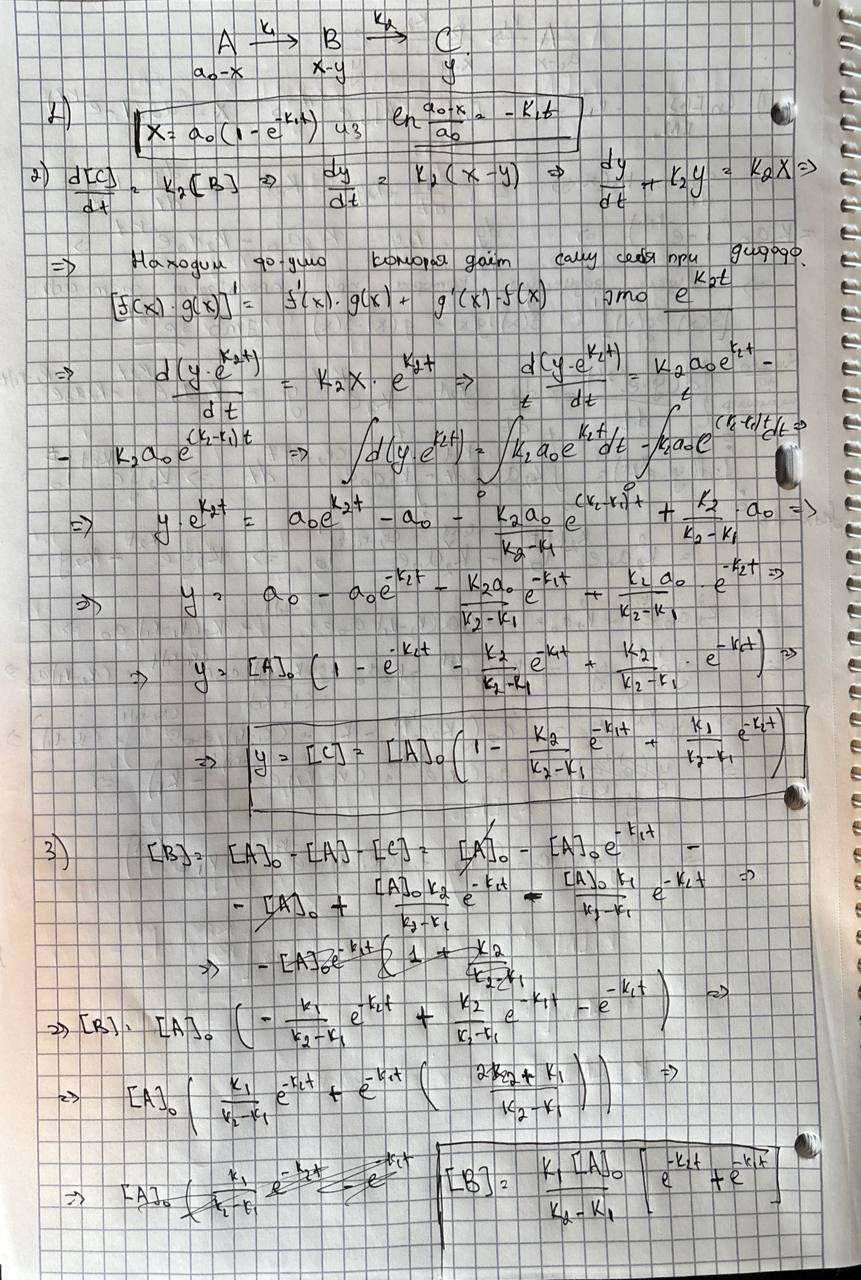 A →(k₁) B →(k₂) C
a₀-x x-y y
1) x = a₀(1 - e^(-k₁t)) из ln (a₀-x)/a₀ = -k₁t
2) d[C]/dt = k₂[B] ⇒ dy/dt = k₂(x-y) ⇒ dy/dt + k₂y = k₂x ⇒
⇒ Находим ф-цию которая даёт саму себя при
[f(x)·g(x)]' = f'(x)·g(x) + g'(x)·f(x) это e^(k₂t)
⇒ d(y·e^(k₂t))/dt = k₂x·e^(k₂t) ⇒ d(y·e^(k₂t))/dt = k₂a₀e^(k₂t) -
- k₂a₀e^((k₂-k₁)t) ⇒ ∫d(y·e^(k₂t)) = ∫₀ᵗ k₂a₀e^(k₂t)dt - ∫₀ᵗ k₂a₀e^((k₂-k₁)t)dt ⇒
⇒ y·e^(k₂t) = a₀e^(k₂t) - a₀ - k₂a₀/(k₂-k₁) e^((k₂-k₁)t) + k₂/(k₂-k₁)·a₀ ⇒
⇒ y = a₀ - a₀e^(-k₂t) - k₂a₀/(k₂-k₁) e^(-k₁t) + k₂a₀/(k₂-k₁)·e^(-k₂t) ⇒
⇒ y = [A]₀(1 - e^(-k₂t) - k₂/(k₂-k₁) e^(-k₁t) + k₂/(k₂-k₁)·e^(-k₂t)) ⇒
⇒ y = [C] = [A]₀(1 - k₂/(k₂-k₁) e^(-k₁t) + k₁/(k₂-k₁) e^(-k₂t))
3) [B] = [A]₀ - [A] - [C] = [A]₀ - [A]₀e^(-k₁t) -
- [A]₀ + [A]₀k₂/(k₂-k₁) e^(-k₁t) - [A]₀k₁/(k₂-k₁) e^(-k₂t) ⇒
⇒ - [A]₀e^(-k₁t)(1 + k₂/(k₂-k₁)
⇒ [B] = [A]₀(- k₁/(k₂-k₁) e^(-k₂t) + k₂/(k₂-k₁) e^(-k₁t) - e^(-k₁t)) ⇒
⇒ [A]₀(k₁/(k₂-k₁) e^(-k₂t) + e^(-k₁t)( + k₁/(k₂-k₁))) ⇒
⇒ [A]₀(k₁/(k₂-k₁) e^(-k₂t) - e^(-k₁t) [B] = k₁[A]₀/(k₂-k₁) [e^(-k₂t) + e^(-k₁t)]